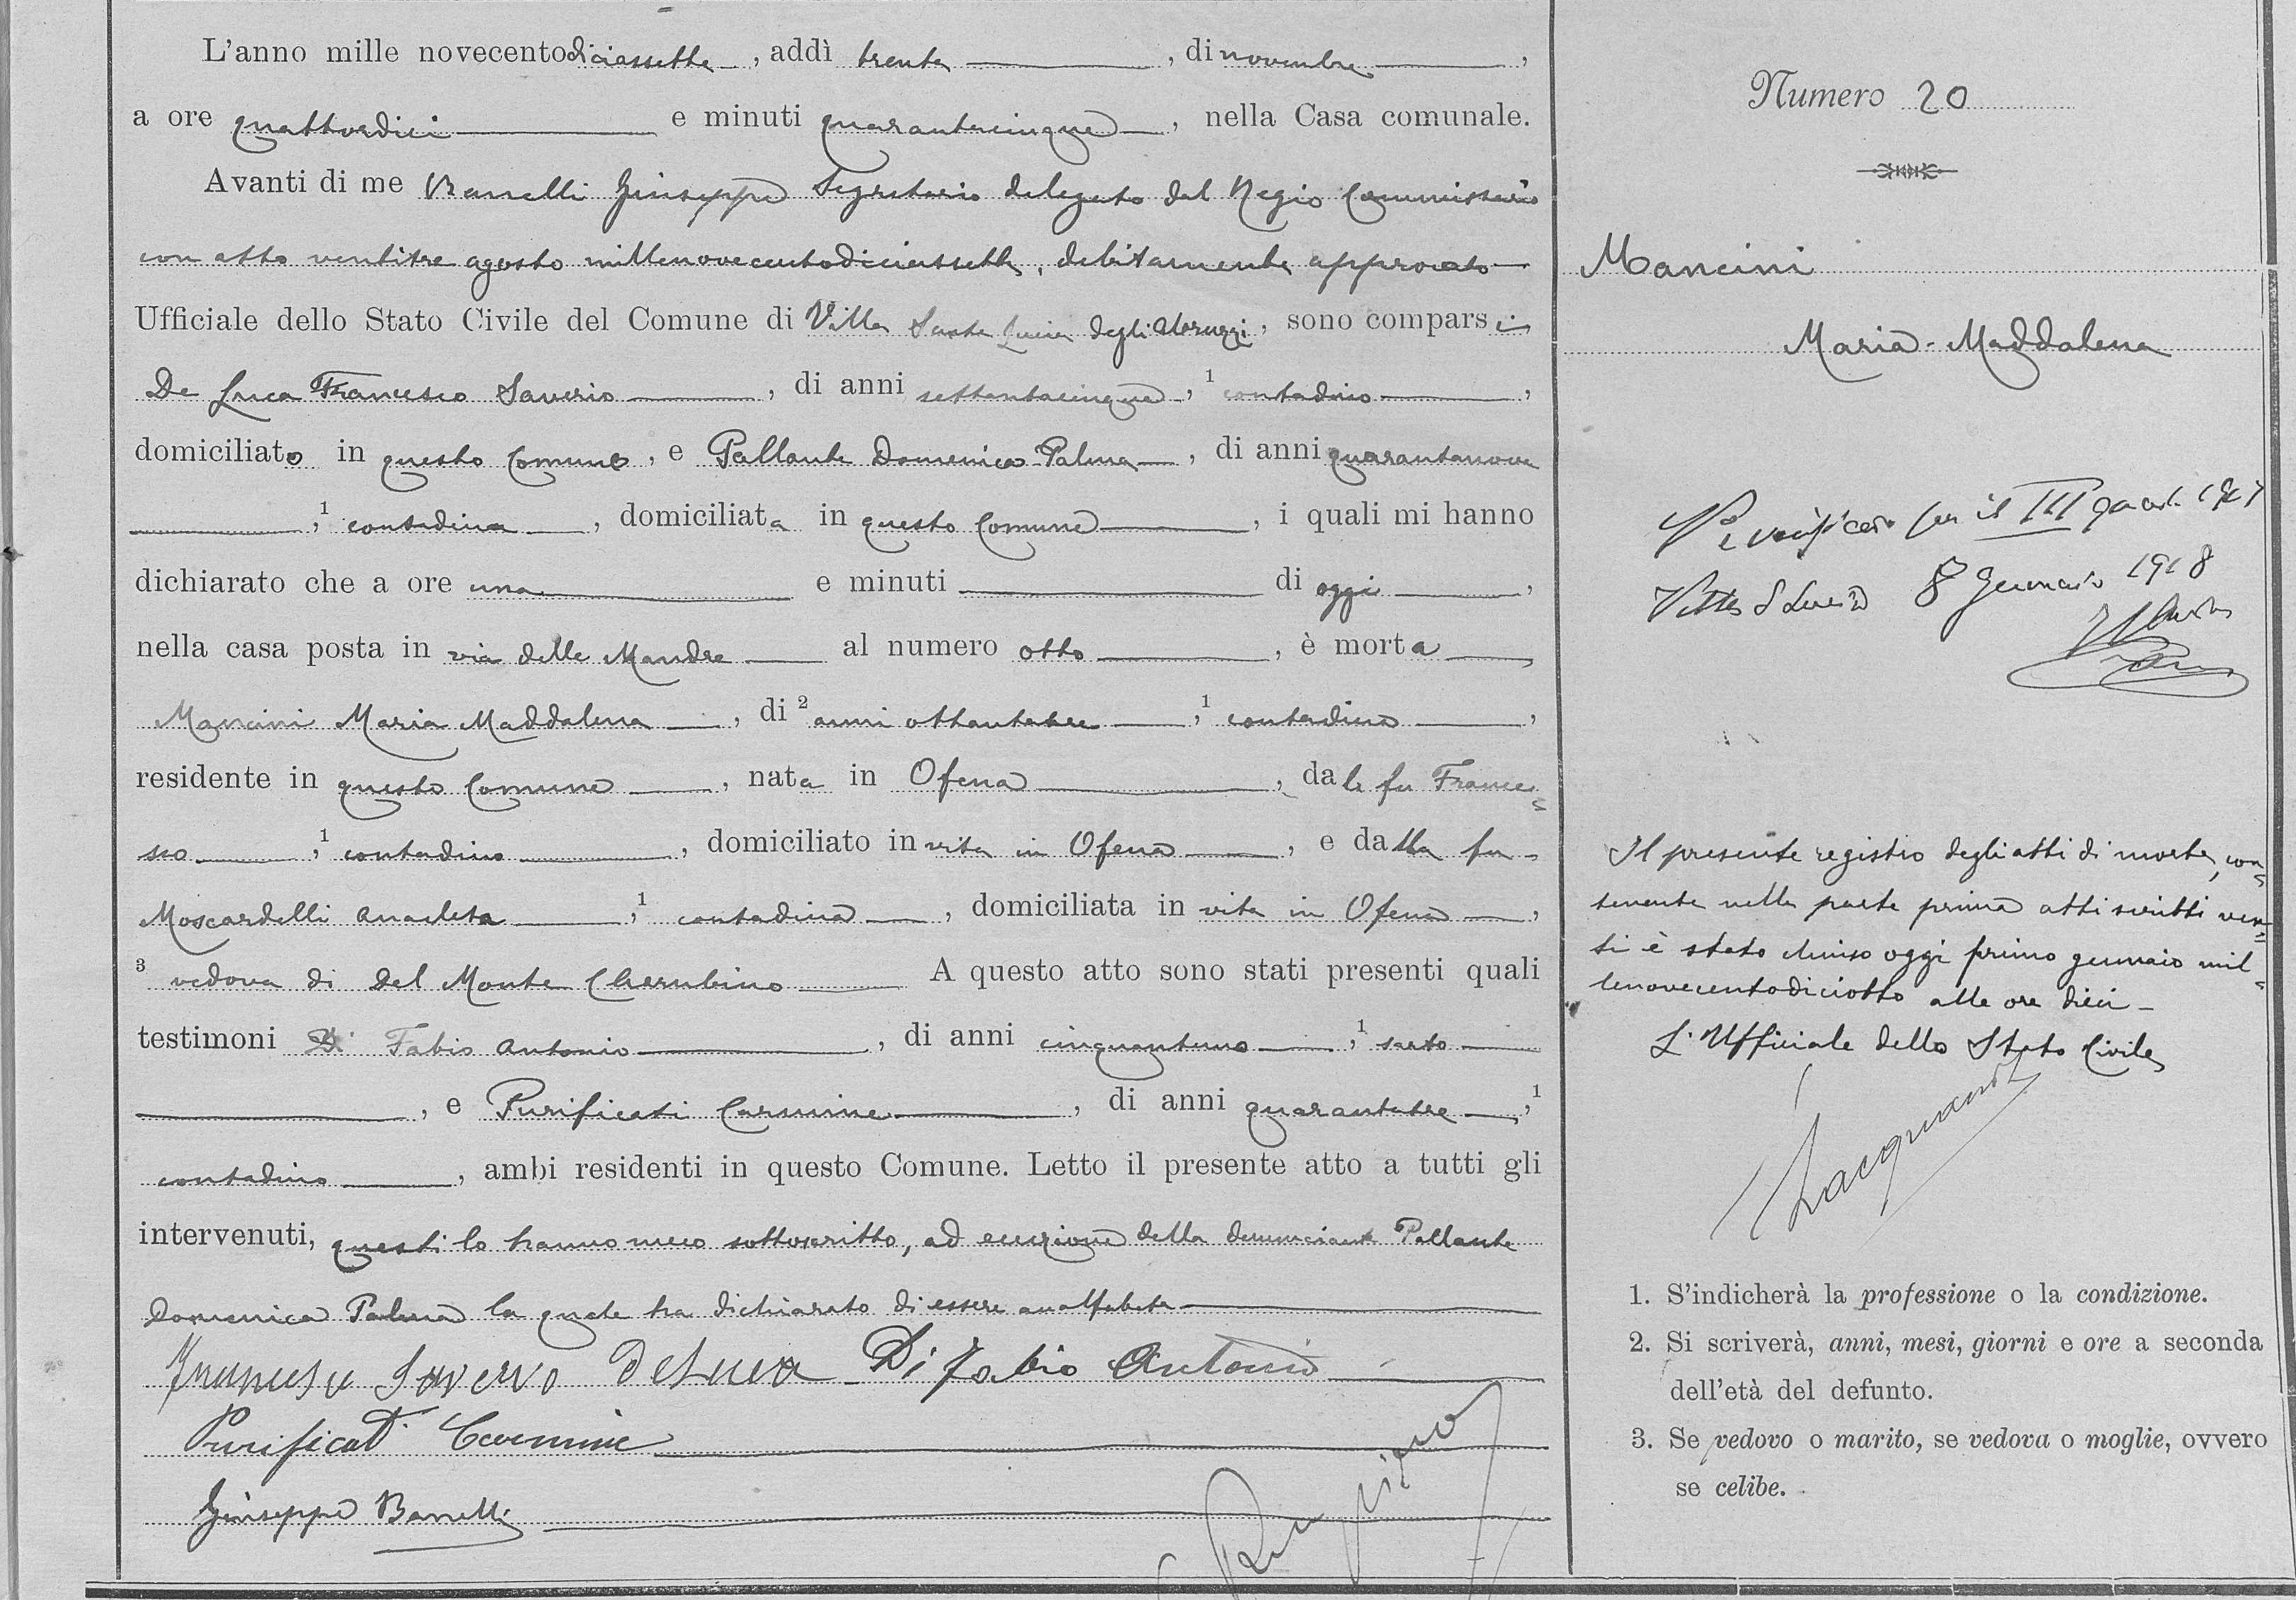 L'anno mille novecentodiciassette, addì trenta, di novembre,
a ore quattordici e minuti quarantacinque, nella Casa comunale.
Avanti di me Barrelli Giuseppe Segretario delegato dal Regio Commissario
con atto ventitre agosto millenovecentodiciassette, debitamente approvato
Ufficiale dello Stato Civile del Comune di Villa Santa Lucia degli Abruzzi, sono comparsi
De Luca Francesco Saverio, di anni settantacinque, 1 contadino,
domiciliato in questo Comune, e Pallante Domenica Palma, di anni quarantanove
, 1 contadina, domiciliata in questo Comune, i quali mi hanno
dichiarato che a ore una e minuti di oggi,
nella casa posta in via delle Mandre al numero otto, è morta
Mancini Maria Maddalena, di 2 anni ottantatre, 1 contadina,
residente in questo Comune, nata in Ofena, dal fu France=
sco, 1 contadino, domiciliato in vita in Ofena, e dalla fu
Moscardelli Anacleta, 1 contadina, domiciliata in vita in Ofena,
3 vedova di Del Monte Cherubino A questo atto sono stati presenti quali
testimoni Di Fabio Antonio, di anni cinquantuno, 1 sarto
, e Purificati Carmine, di anni quarantatre, 1
contadino, ambi residenti in questo Comune. Letto il presente atto a tutti gli
intervenuti, questi lo hanno meco sottoscritto, ad eccezione della denunciante Pallante
Domenica Palma la quale ha dichiarato di essere analfabeta
Francesco Saverio DeLuca Di Fabio Antonio
Purificati Carmine
Giuseppe Barrelli
Numero 20
Mancini
Maria Maddalena
verificato per il III
Villa S Lucia 8 Gennaio 1918
Il presente registro degli atti di morte, con=
tenente nella parte prima atti scritti ven=
ti è stato chiuso oggi primo gennaio mil=
lenovecentodiciotto alle ore dieci
L'Ufficiale dello Stato Civile
1. S'indicherà la professione o la condizione.
2. Si scriverà, anni, mesi, giorni e ore a seconda
dell'età del defunto.
3. Se vedovo o marito, se vedova o moglie, ovvero
se celibe.